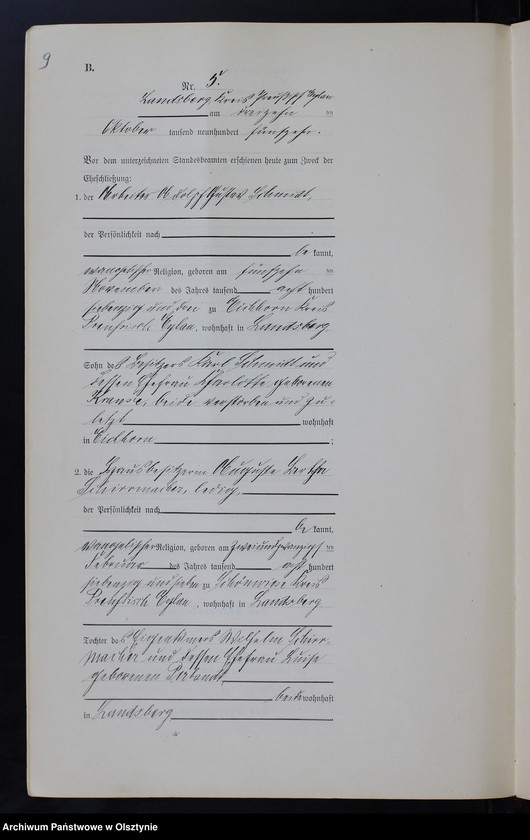 9
B.
Nr. 5.
Landsberg Kreis Preußisch Eylau
am dreizehn ten
Oktober tausend neunhundert fünfzehn.
Vor dem unterzeichneten Standesbeamten erschienen heute zum Zweck der
Eheschließung:
1. der Arbeiter Adolf Gustav Schmidt,
der Persönlichkeit nach
be kannt,
evangelischer Religion, geboren am fünfzehn ten
November des Jahres tausend acht hundert
siebenzig und zu Eichhorn Kreis
Preußisch Eylau, wohnhaft in Landsberg
Sohn des Besitzers Karl Schmidt und
dessen Ehefrau Charlotte geborenen
Krause, beide verstorben und zu-
letzt wohnhaft
in Eichhorn ;
2. die Hausbesitzerin Auguste Bertha
Schirrmacher, ledig,
der Persönlichkeit nach
be kannt,
evangelischer Religion, geboren am zweiundzwanzigs ten
Februar des Jahres tausend acht hundert
siebenzig und sieben zu Schönwiese Kreis
Preußisch Eylau, wohnhaft in Landsberg
Tochter des Eigentümers Wilhelm Schirr-
macher und dessen Ehefrau Luise
geborenen
beide wohnhaft
in Landsberg
Archiwum Państwowe w Olsztynie